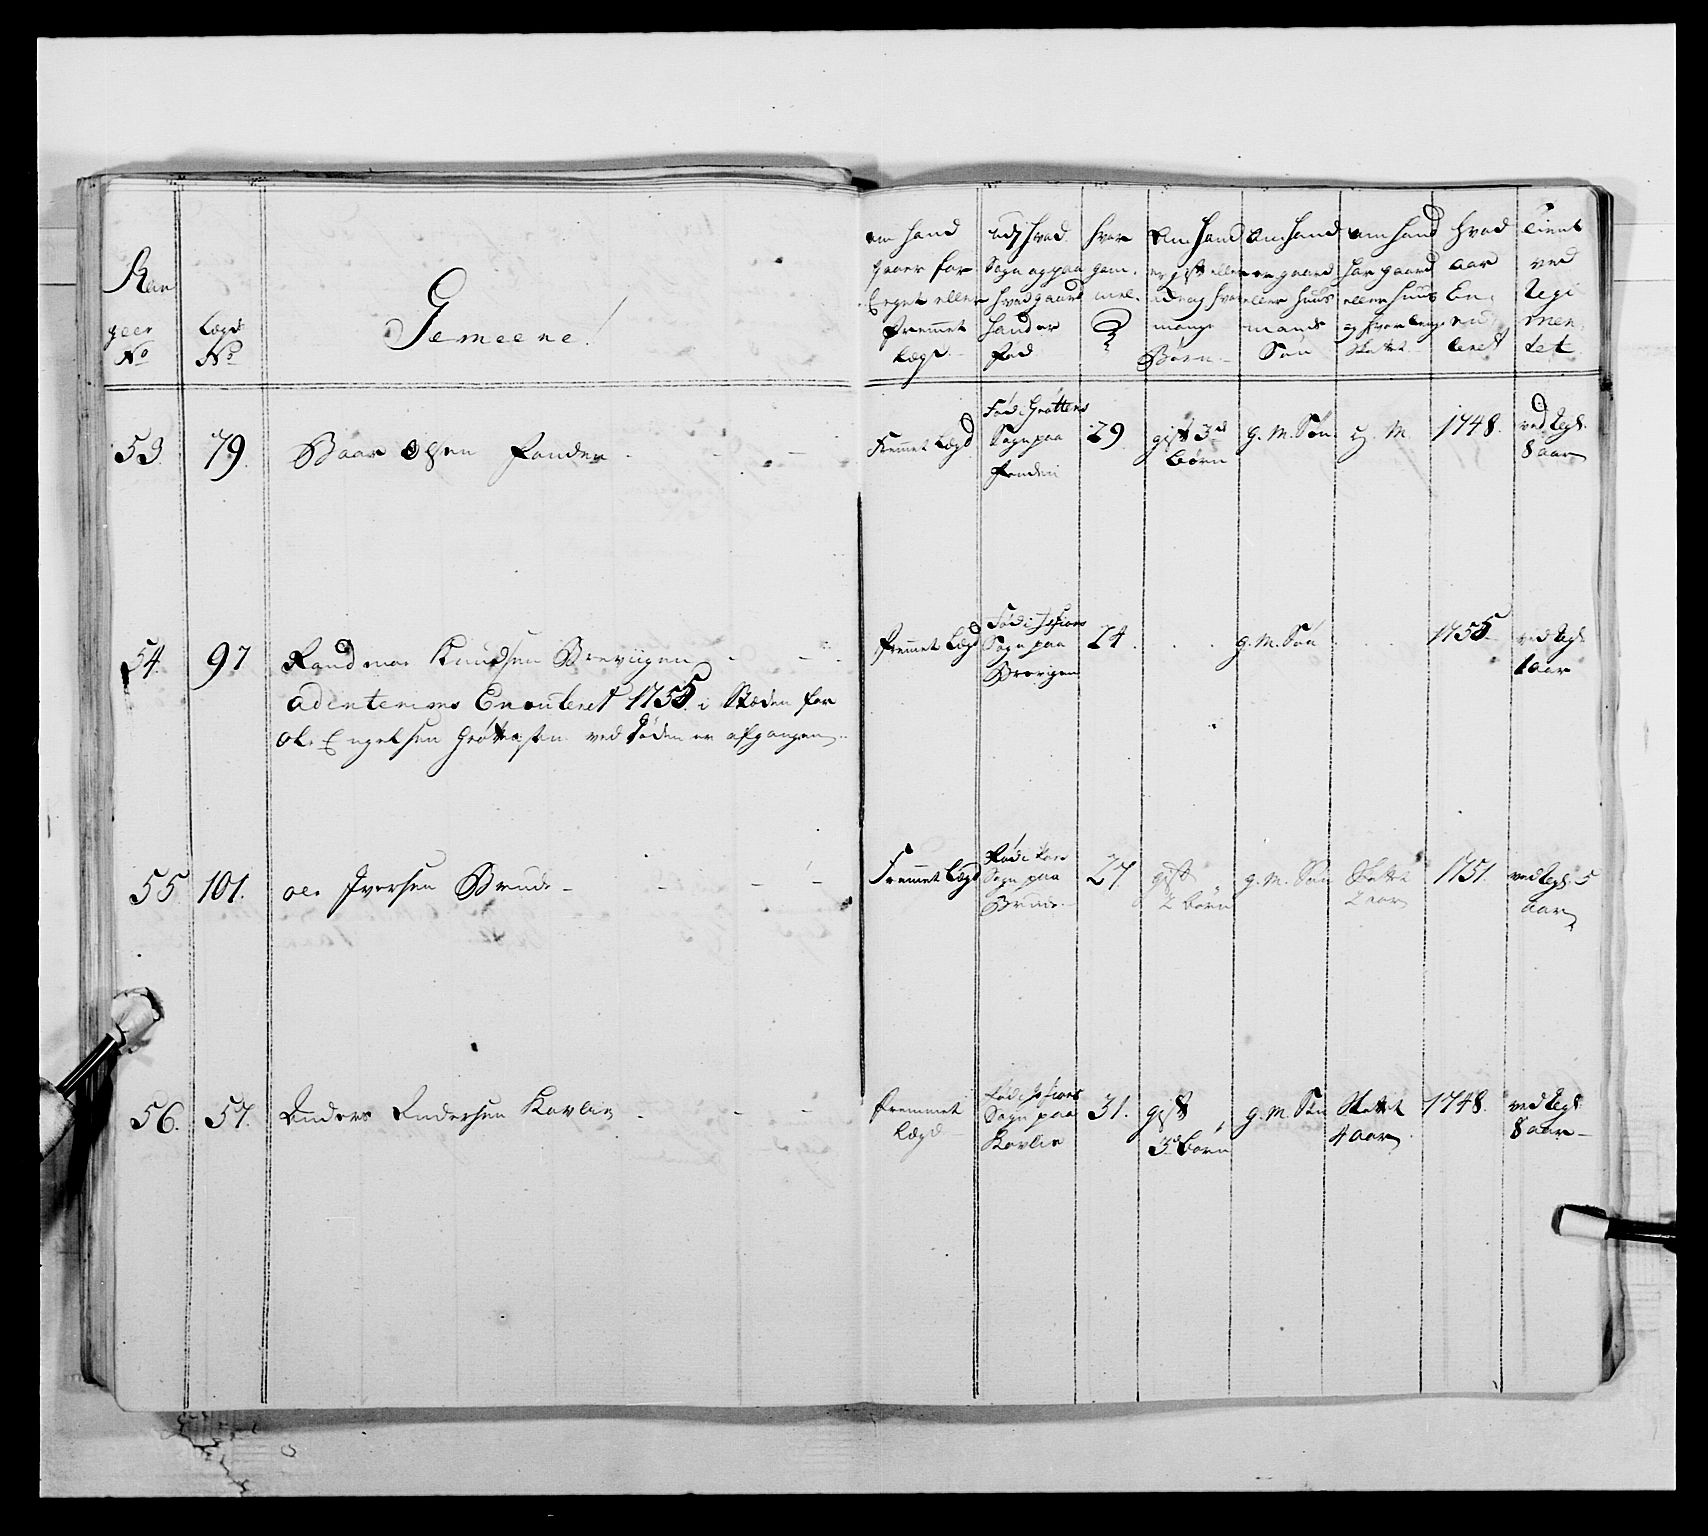 Ran
geer
No
Lægs
No
Gemeene!
om hand
gaaer for
Eeget eller
fremmet
Lægd
udj hvad
Sogn og paa
hvad gaard
hand er
fød
hvor
gam,
mel.
Om hand
er gift eller
ei og hvor
mange
Børn
Om hand
er gaard
eller huus
mands
Søn
om hand
har gaard
eller huus
og hvor lenge
Skattet
hvad
aar
En,
rou,
leret
Tient
ved
Regi
men,
tet
53. 79. Baar Olsen Fonden
Fremmet Lægd
Fød i Grøtten
Sogn paa
Fonden
29
gift 3de
børn
g. M. Søn
g. M.
1748.
ved Regt.
8 aar
54. 97 Raad mar Knudsen Breviigen
adinterims Enrouleret 1755 i Stæden for
Ole Engelsen Grøtten ved Døden er afgangen
fremmet Lægd
Fød i
Sogn paa
Brevigen
24.
g. M. Søn
1755
ved Regt.
1 aar
55 101. ole Iversen Brude
Fremmet Lægd
Fød i
Sogn paa
Brude
27
gift
2 børn
g. M. Søn
Skattet
2 aar
1751.
ved Regt. 5
aar
56. 57. Anders Andersen Kavlie
fremmet
Lægd
Fød i
Sogn paa
Kavlie
31.
gift
3de børn
g. M. Søn
Skattet
4 aar
1748.
ved Regt
8 aar